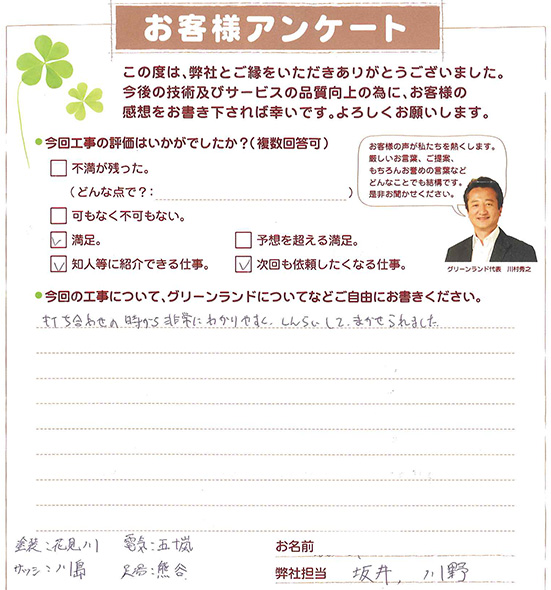 お客様アンケート
この度は、弊社とご縁をいただきありがとうございました。
今後の技術及びサービスの品質向上の為に、お客様の
感想をお書き下されば幸いです。よろしくお願いします。
●今回工事の評価はいかがでしたか?(複数回答可)
お客様の声が私たちを熱くします。
厳しいお言葉、ご提案、
もちろんお誉めの言葉など
どんなことでも結構です。
是非お聞かせください。
グリーンランド代表 川村秀之
不満が残った。
(どんな点で?: )
可もなく不可もない。
満足。 予想を超える満足。
知人等に紹介できる仕事。 次回も依頼したくなる仕事。
●今回の工事について、グリーンランドについてなどご自由にお書きください。
打ち合わせの時から非常にわかりやすく、しんらいして、まかせられました
塗装:花見川 電気:五十嵐
サッシ:川島 足場:熊谷
お名前
弊社担当 坂井, 川野